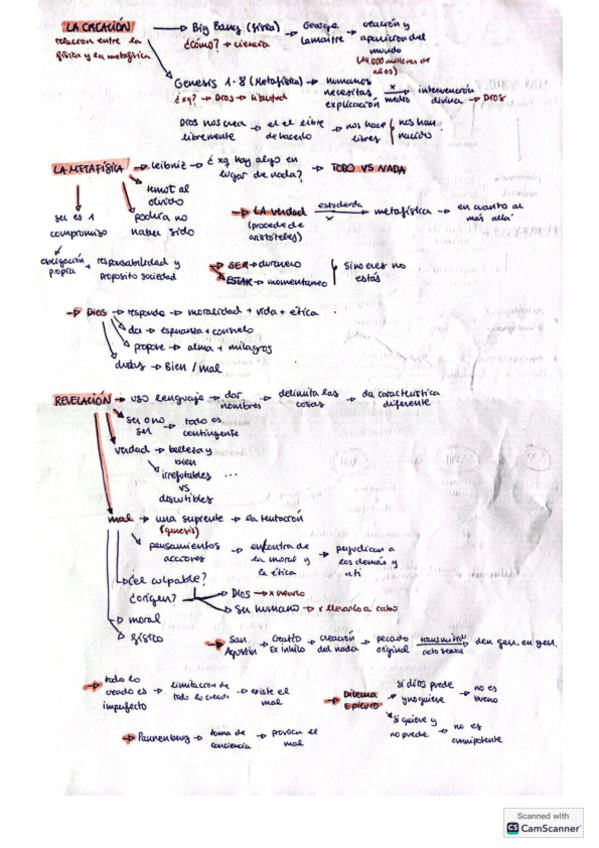 LA CREACIÓN → Big Bang (física) → George Lamaitre → creación y aparición del mundo
relación entre la física y la metafísica
¿cómo? → ciencia
(14.000 millones de años)
Genesis 1-8 (Metafísica) → humanos necesitas explicación → x medio → intervención divina → Dios
¿xq? → Dios → libertad
Dios nos crea libremente → el el libre de hacerlo → nos hace libres { nos han nacido
LA METAFÍSICA → Leibniz → ¿xq hay algo en lugar de nada? → TODO VS NADA
al olvido
podría no haber sido
ser es 1 compromiso
→ LA verdad (procede de aristóteles) → estudiarla x → metafísica → en cuanto al más allá
obligación propia + responsabilidad y proposito sociedad
→ SER → duradero
→ ESTAR → momentaneo
Si no eres no estás
→ Dios → responde → moralidad + vida + ética
da → esperanza + consuelo
propone → alma + milagros
dudas → Bien / mal
REVELACIÓN → uso lenguaje → dar nombres → delimita las cosas → da característica diferente
ser o no ser → todo es contingente
verdad → belleza y bien
irrefutables ...
vs
discutibles
mal → una serpiente → la tentación
(genesis)
pensamientos acciones → en contra de la moral y la ética → perjudican a los demás y a ti
¿el culpable?
¿origen? → Dios → x
Ser humano → x llevarlo a cabo
→ moral
→ físico
→ San Agustín → Creatio Ex inhilo → creación del nada → pecado original → transmitir acto sexual → den gen. en gen.
→ todo lo creado es imperfecto → limitacion de todo lo creado → existe el mal
→ Dilema Epicuro → si dios puede y no quiere → no es bueno
Si quiere y no puede → no es omnipotente
→ Pannenberg → toma de conciencia → provocar el mal
Scanned with
CS CamScanner